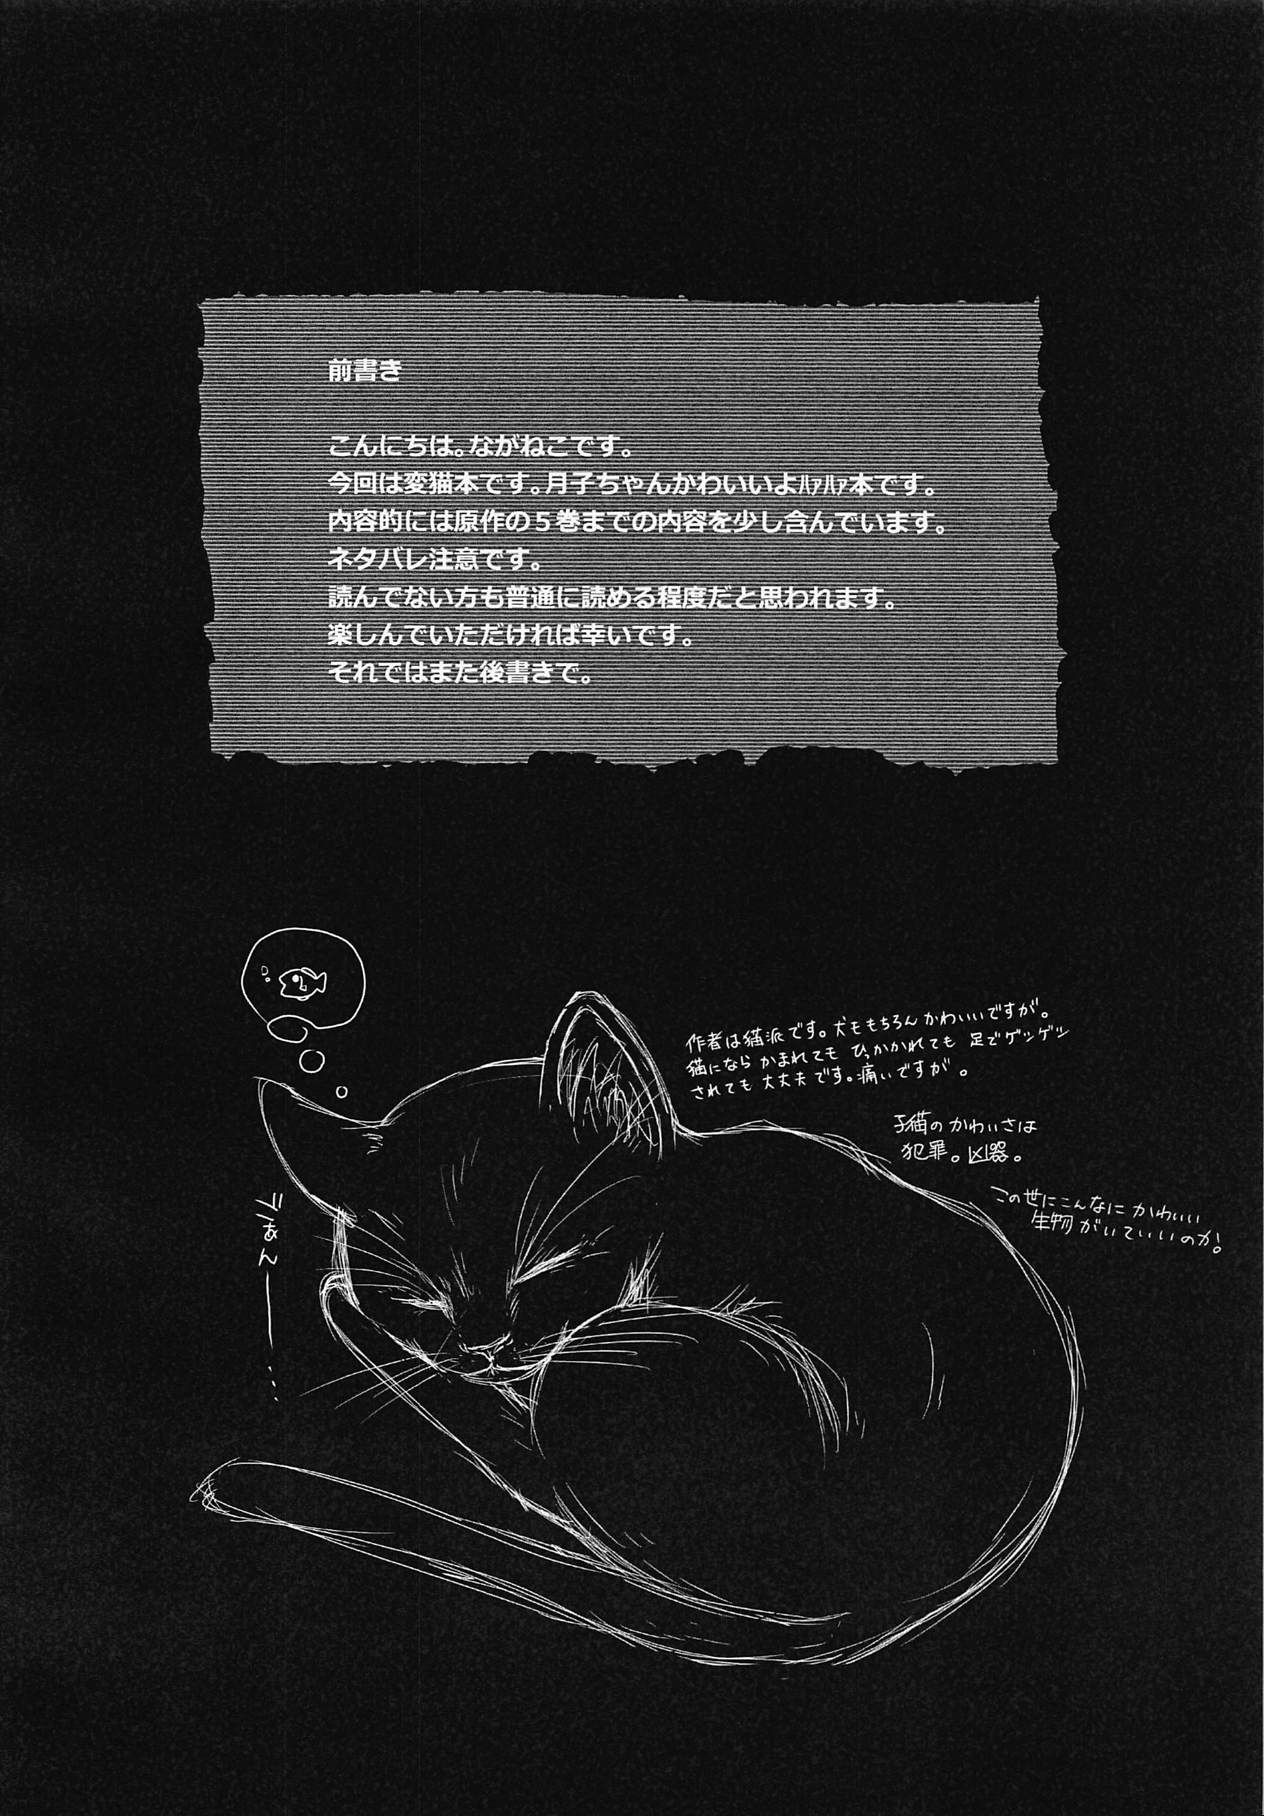 前書き
こんにちは。ながねこです。
今回は変猫本です。月子ちゃんかわいいよﾊｧﾊｧ本です。
内容的には原作の５巻までの内容を少し含んでいます。
ネタバレ注意です。
読んでない方も普通に読める程度だと思われます。
楽しんでいただければ幸いです。
それではまた後書きで。
作者は猫派です。犬ももちろんかわいいですが。
猫になら かまれても ひっかかれても 足でゲシゲシ
されても大丈夫です。痛いですが。
子猫のかわいさは
犯罪。凶器。
この世にこんなにかわいい
生物がいていいのか!